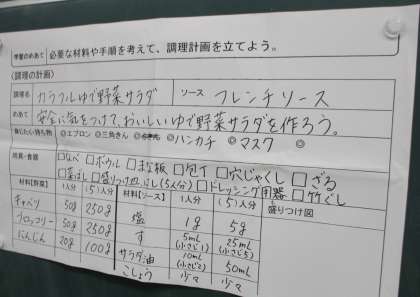 学習のめあて 必要な材料や手順を考えて、調理計画を立てよう。
(調理の計画)
調理名 カラフルゆで野菜サラダ ソース フレンチソース
めあて 安全に気をつけて、おいしいゆで野菜サラダを作ろう。
◎エプロン ◎三角きん ◎ ◎ハンカチ ◎マスク ◎
用具・食器 □なべ □ボウル □まな板 □包丁 □穴じゃくし □ざる
□菜ばし □盛りつけ (5人分) □ドレッシング用器 □竹ぐし
材料【野菜】 1人分 (5)人分 材料【ソース】 1人分 (5)人分 盛りつけ図
キャベツ 50g 250g 塩 1g 5g
ブロッコリー 50g 250g す 5mL (小さじ1) 25mL (小さじ5)
にんじん 20g 100g サラダ油 10mL (小さじ2) 50mL
こしょう 少々 少々